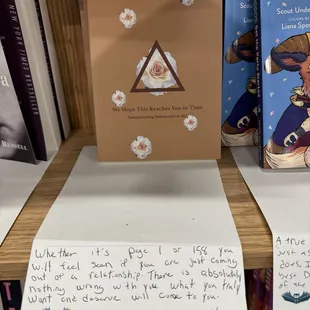 NEW YORK TIMES
RUSSELL
We Hope This Reaches You in Time
Scout Under
COLORS BY
Liana Spo
Whether it's page 1 or 158 you
will feel seen if you are just coming
out of a relationship. There is absolutely
nothing wrong with you what you truly
Want and deserve will come to you.
A true
does. I
best D
of the